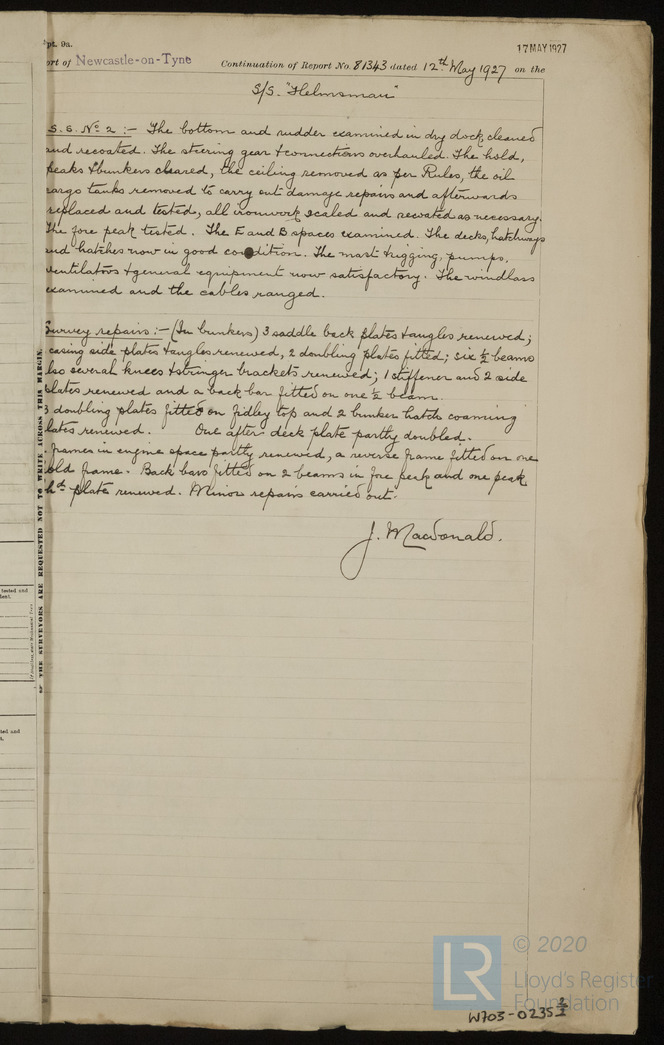 pt. 9a.
17 MAY 1927
ort of Newcastle-on-Tyne Continuation of Report No. 81343 dated 12th May 1927 on the
S/S. "Helmsman"
S. S. No 2 :- The bottom and rudder examined in dry dock, cleaned
and recoated. The steering gear + connections overhauled. The hold,
peaks + bunkers cleared, the ceiling removed as per Rules, the oil
cargo tanks removed to carry out damage repairs and afterwards
replaced and tested, all ironwork scaled and recoated as necessary.
The fore peak tested. The E and B spaces examined. The decks, hatchways
and hatches now in good condition. The mast + rigging, pumps,
ventilators + general equipment now satisfactory. The windlass
examined and the cables ranged.
Survey repairs :- (In bunkers) 3 saddle back plates + angles renewed;
casing side plates + angles renewed, 2 doubling plates fitted; six ½ beams
lso several knees + stringer brackets renewed; 1 stiffener and 2 side
plates renewed and a back bar fitted on one ½ beam.
3 doubling plates fitted on fidley top and 2 bunker hatch coaming
plates renewed. One after deck plate partly doubled.
frames in engine space partly renewed, a reverse frame fitted on one
old frame. Back bars fitted on 2 beams in fore peak and one peak
hd plate renewed. Minor repairs carried out.
J. Macdonald.
THE SURVEYORS ARE REQUESTED NOT TO WRITE ACROSS THIS MARGIN.
tested and
dent.
ted and
t.
LR
© 2020
Lloyd's Register
Foundation
W703-0235 2/2